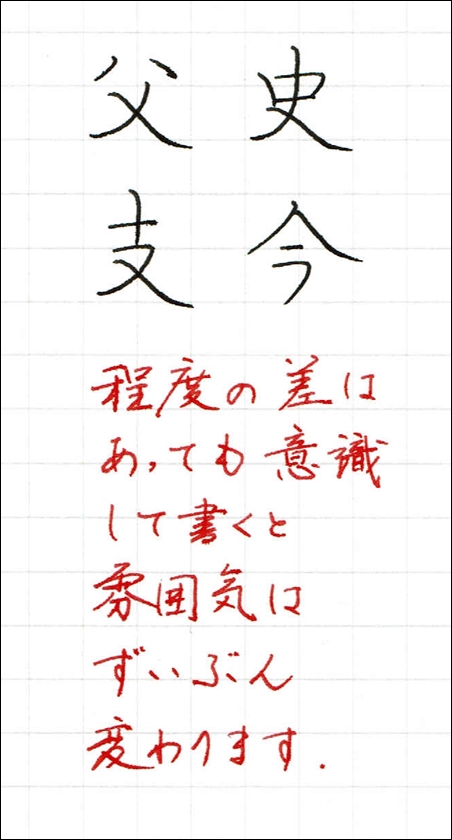 父 史
支 今
程度の差は
あっても意識
して書くと
雰囲気は
ずいぶん
変わります.